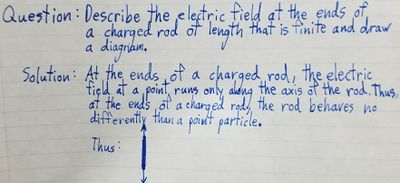 Question: Describe the electric field at the ends of
a charged rod of length that is finite and draw
a diagram.
Solution: At the ends of a charged rod, the electric
field at a point runs only along the axis of the rod. Thus,
at the ends of a charged rod, the rod behaves no
differently than a point particle.
Thus: